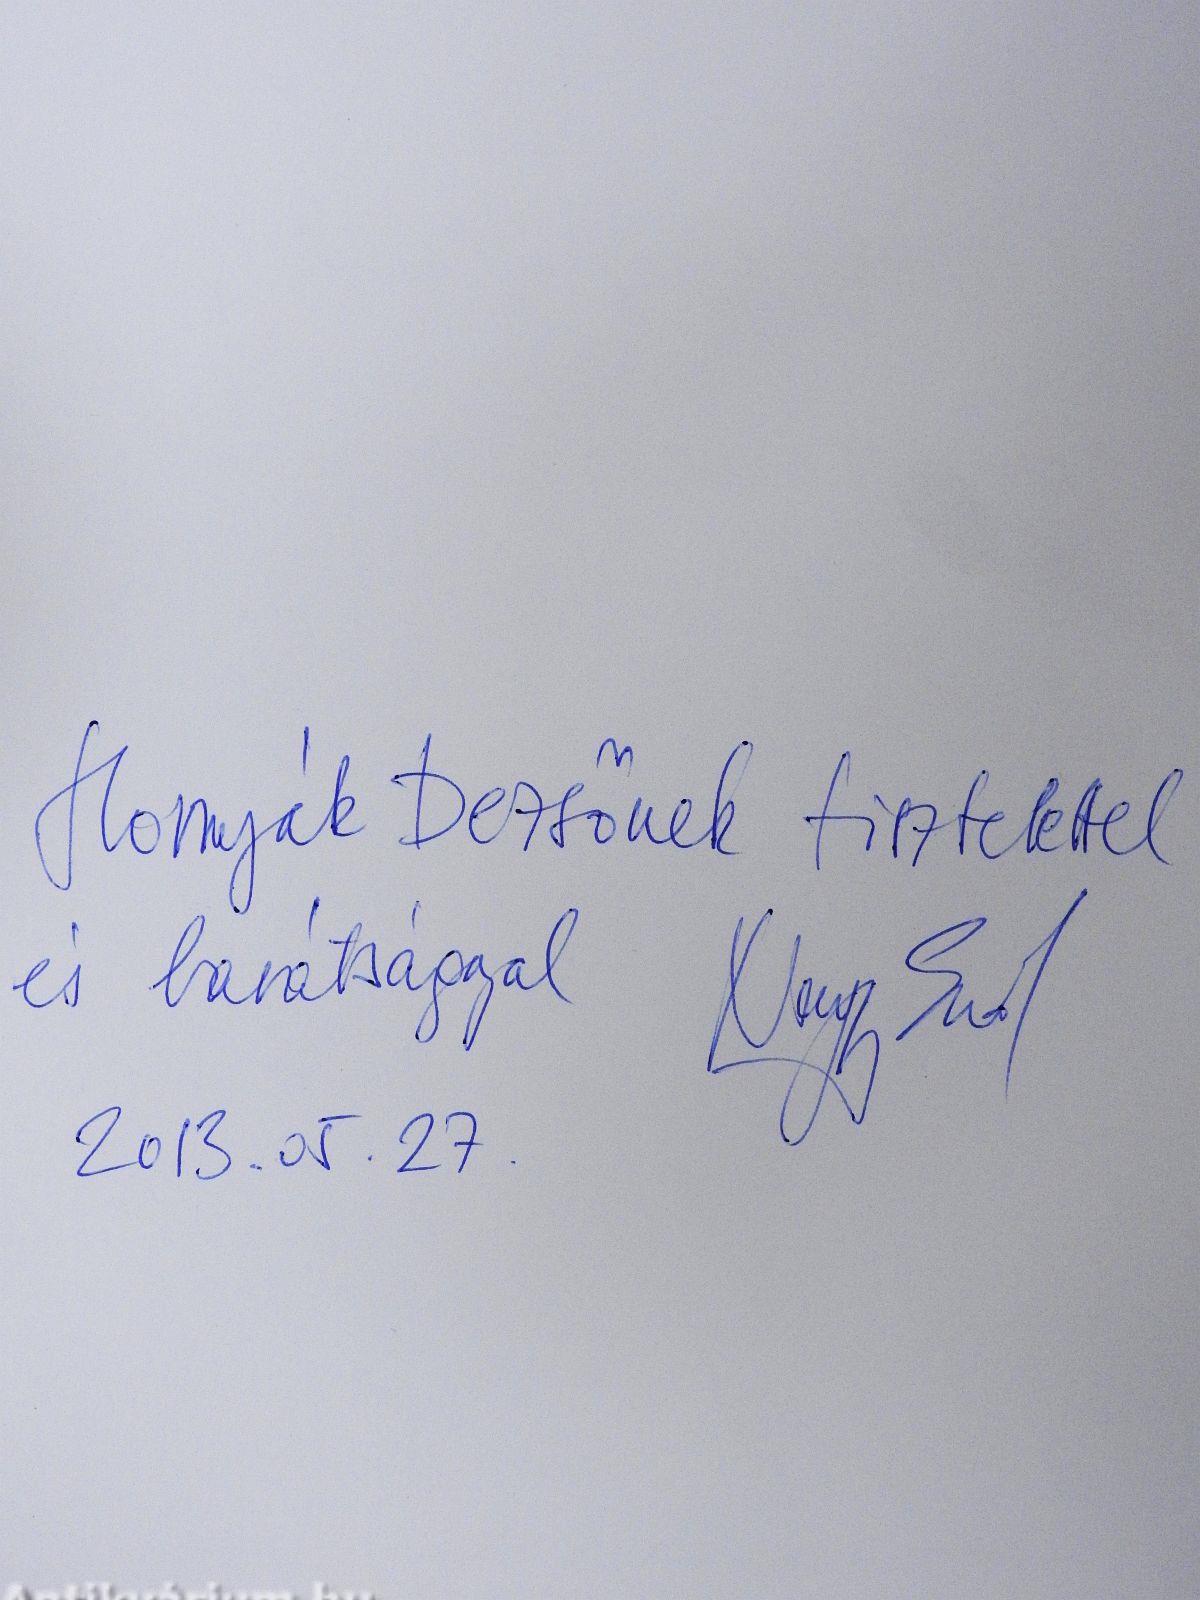 Hornyák Dezsőnek tisztelettel
és barátsággal Nagy
2013.05.27.
Antikvárium.hu